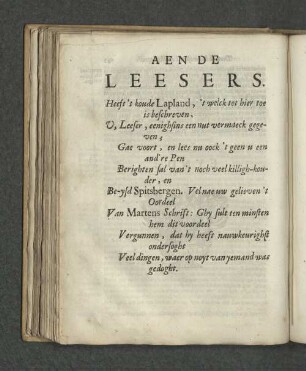 AEN DE
LEESERS.
Heeft 't koude Lapland, 't welck tot hier toe
is beschreven,
U, Leeser, eenighsins een nut vermaeck gege-
ven;
Gae voort, en lees nu oock 't geen u een
and're Pen
Berighten sal van 't noch veel killigh-kou-
der, en
Be-ysd Spitsbergen. Vel nae uw gelieven 't
Oordeel
Van Martens Schrift: Ghy sult ten minsten
hem dit voordeel
Vergunnen, dat hy heeft nauwkeurighst
ondersoght
Veel dingen, waer op noyt van yemand was
gedoght.